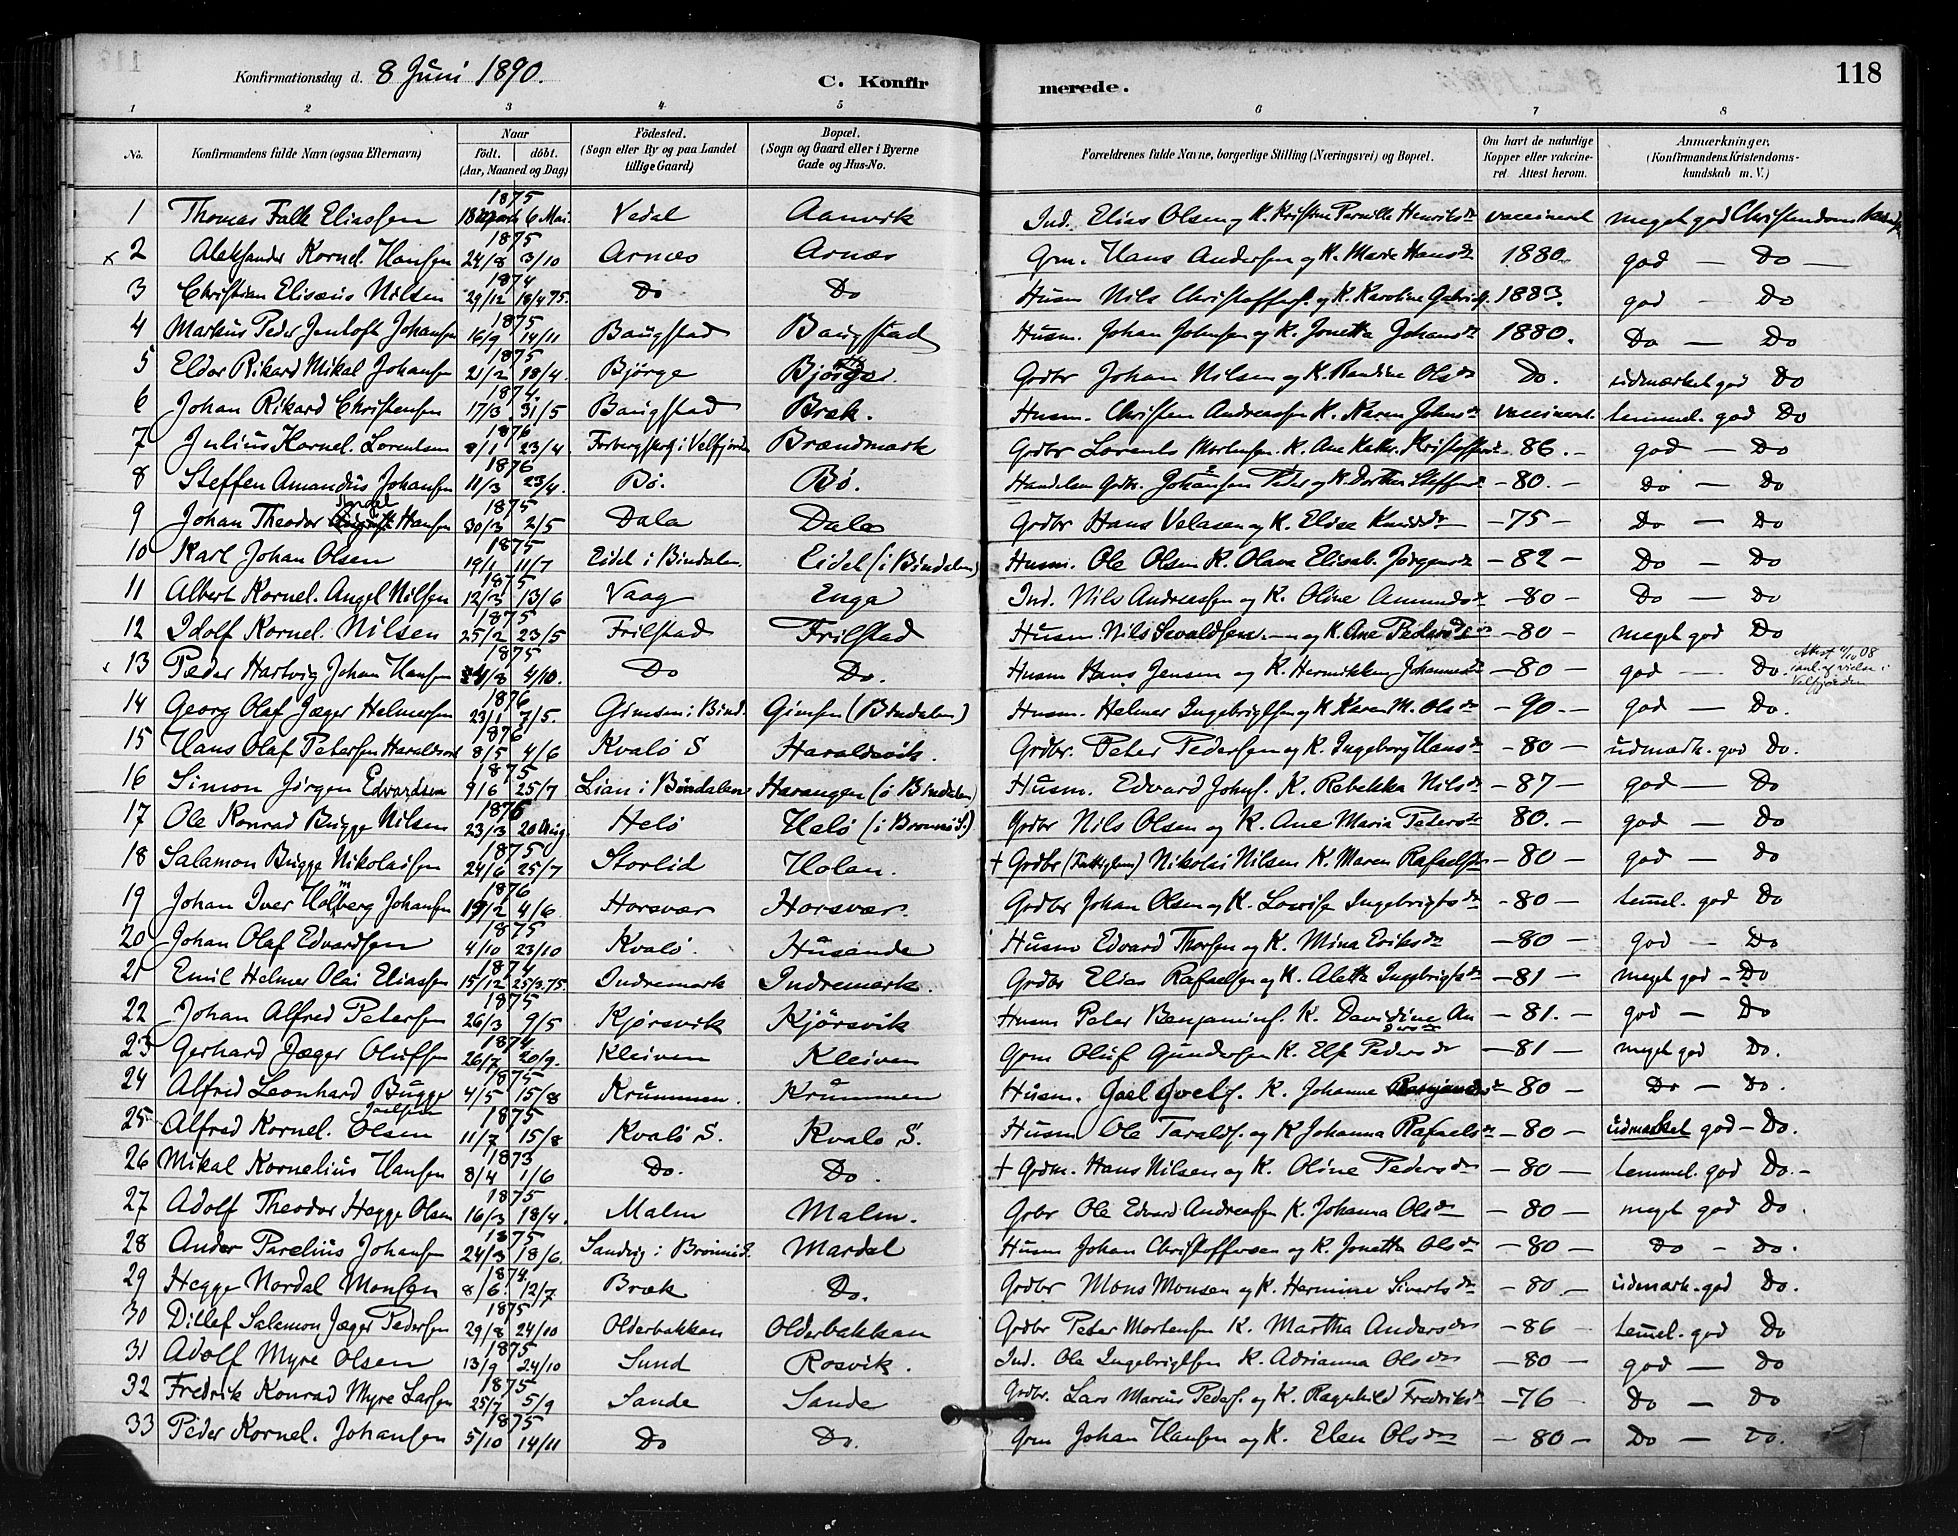 Konfirmationsdag d. 8 Juni 1890. C. Konfir merede. 118
1 2 3 4 5 6 7 8
No. Konfirmandens fulde Navn (ogsaa Efternavn) Naar født, døbt. (Aar, Maaned og Dag) Fødested. (Sogn eller By og paa Landet tillige Gaard) Bopæl. (Sogn og Gaard eller i Byerne Gade og Hus-No. Forældrenes fulde Navne, borgerlige Stilling (Næringsvei) og Bopæl. Om havt de naturlige Kopper eller vakcineret. Attest herom. Anmærkninger. (Konfirmandens Kristendomskundskab m. V.)
1 Thomas Falk Eliassen 1875 6 Mai Vedal Aanvik Ind. Elias Olsen og K. Kristine Pernille Henriksdr vaccineret meget god Christendoms
x 2 Aleksander Kornel. Hansen 1875 24/8 3/10 Arnæs Arnæs Grm. Hans Andersen og K. Marie Hansdr 1880. god — Do —
3 Christian Elisæus Nilsen 1874 29/12 18/4 75. Do Do Husm Nils Christoffers. og K. Karoline Gabriels. 1883. god — Do
4 Markus Peder Jentoft Johansen 1875 16/9 14/11 Baugstad Baugstad Husm. Johan Johnsen og K. Jonetta Johansdr 1880. Do — Do
5 Eldor Rikard Mikal Johansen 1875 21/2 18/4. Bjørge Bjørge. Grdbr Johan Nilsen og K. Randine Olsdr Do. udmærket god Do
6 Johan Rikard Christensen 1874. 17/3. 31/5 Baugstad Bræk. Husm. Christen Andreassen K. Karen Johnsdr vaccineret temmel. god Do
7 Julius Kornel. Lorentsen 1876 8/1 23/4 i Velfjorden Brændmark Grdbr Lorents Mortensen. K. Ane Kathr. Kristoffersdr – 86. – god — Do
8 Steffen Amandus Johansen 1876 11/3 23/4. Bø. Bø. Johansen Peder og K. Dorthea Steffensdr – 80. – Do — Do
9 Johan Theodor Hansen 1875 30/3 2/5 Dala Dala Grdbr Hans Velasen og K. Elise Knudsdr – 75 – Do — Do
10 Karl Johan Olsen 1875 19/1 11/7 Eidel i Bindalen. Eidel (i Bindalen) Husm. Ole Olsen K. Olava Elisab. Jørgensdr – 82 – Do — Do
11 Albert Kornel. Angel Nilsen 1875 12/3 13/6 Vaag Enga Ind. Nils Andreassen og K. Oline Amundsdr – 80 – Do — Do
12 Idolf Kornel. Nilsen 1875 25/2 23/5 Frilstad Frilstad Husm Nils Sivaldsen og K. Ane Pedersdr – 80 – meget god Do
x 13 Peder Hartvig Johan Hansen 1875 24/8 4/10. Do Do. Husm Hans Jensen og K. Hennikken Johannesdr – 80 god — Do. Attest 4/10 08 anl. af vielse i Velfjorden
14 Georg Olaf Jæger Helmersen 1876 23/1 7/5. Gimsen i Bind. Gimsen (Bindalen) Husm. Helmer Ingebrigtsen og K Karen M. Olsdr – 90. – god — Do.
15 Hans Olaf Petersen Haraldsvik 1876 8/5 4/6 Kvalø S Haraldsvik. Grdbr. Peter Pedersen og K. Ingeborg Hansdr – 80 – udmærk. god Do.
16 Simon Jørgen Edvardsen 1875 9/6 25/7 Lian i Bindalen Harangen (i Bindalen) Husm. Edvard Johns. K. Rebekka Nilsdr – 87 – god — Do
17 Ole Konrad Bugge Nilsen 1875 23/3 20 Aug. Helø Helø (i Brønnø S.) Grdbr Nils Olsen og K. Ane Maria Pedersdr 80. – god — Do
18 Salamon Bugge Nikolaisen 1875 24/6 25/7 Storlid Holan. + Grdbr (Fattiglem) Nikolai Nilsen K. Maren Rafaelsdr – 80 – god — Do
19 Johan Iver Holmberg Johansen 1876 19/2 4/6. Horsvær Horsvær. Grdbr Johan Olsen og K. Lovise Ingebrigtsdr – 80 – temmel. god Do
20 Johan Olaf Edvardsen 1875 4/10 23/10 Kvalø. Husande Husm Edvard Thorsen og K. Mina Eriksdr – 80 – god — Do
21 Emil Helmer Olai Eliassen 1874 15/12 25/3.75. Indremark Indremark. Grdbr Elias Rafaelsen og K. Aletta Ingebrigtsdr – 81 meget god – Do
22 Johan Alfred Petersen 1875 26/3 9/5 Kjørsvik Kjørsvik Husm Peter Benjamins. K. Davidine Andersdr – 81. – god — Do
23 Gerhard Jæger Olufsen 1874 26/7 20/9. Kleiven Kleiven Grm Oluf Gundersen K. Else Pedersdr – 81 – meget god Do.
24 Alfred Leonhard Bugge Joelsen 1875 4/5 15/8 Krummen. Krummen Husm. Joel Joels. K. Johanne – 80 Do — Do.
25 Alfred Kornel. Olsen 1875 11/7 15/8 Kvalø S. Kvalø S. Husm Ole Taralds. og K Johanna Rafaelsdr – 80 – udmærket god – Do.
26 Mikal Kornelius Hansen 1873 8/4 1/6 Do. Do. + Grdm. Hans Nilsen og K. Oline Pedersdr – 80 – temmel. god Do. –
27 Adolf Theodor Hegge Olsen 1875 16/3 18/4. Malm Malm. Grbr Ole Edvard Andreassen K. Johanna Olsdr – 80 – meget god Do.
28 Ander Parelius Johansen 1875 24/3 18/6. Sandvig i Brønnø S. Mardal Husm Johan Christoffersen og K. Jonetta Olsdr – 80 – Do – Do.
29 Hegge Nordal Monsen 1874. 8/6. 12/7 Bræk Do. Grdbr Mons Monsen og K. Hermine Sivertsdr – 80. – udmærk. god Do.
30 Ditlef Salemon Jæger Pedersen 1875 29/8 24/10 Olderbakkan Olderbakkan Grdbr Peter Mortensen K. Martha Andersdr – 86 temmel. god Do
31 Adolf Myre Olsen 1875 13/9 24/10 Sund Rosvik. Ind. Ole Ingebrigtsen K. Adrianna Olsdr – 80 – god — Do
32 Fredrik Konrad Myre Larsen 1875 25/7 5/9 Sande Sande Grdbr. Lars Marius Peders. og K. Ragnhild Fredriksdr – 76 Do — Do
33 Peder Kornel. Johansen 1875 5/10 14/11 Do Do. Grm Johan Hansen og K. Elen Olsdr – 80 – Do — Do.